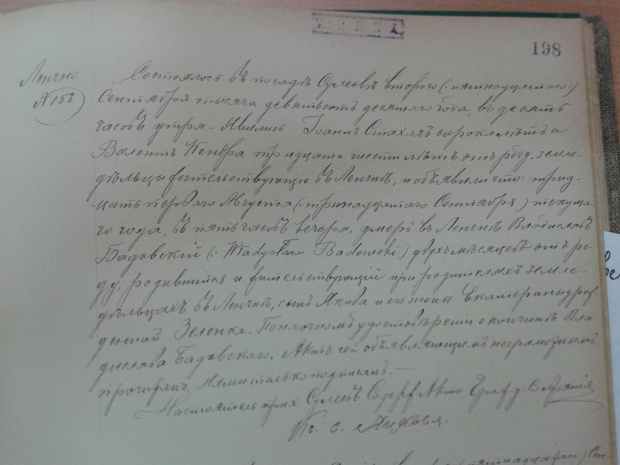 198
Ленчно
№ 153
Состоялось въ посадѣ Сулеевѣ второго (пятнадцатого)
Сентября тысяча девятьсотъ десятаго года, въ десять
часовъ утра. Явились Іоаннъ Стахакъ сорока лѣтъ и
Валентъ тридцати шести лѣтъ отъ роду, земле-
дѣльцы жительствующіе въ Ленчнѣ, и объявили что трид-
цать перваго Августа (тринадцатаго Сентября) текуща-
го года, въ пять часовъ вечера, умеръ въ Ленчнѣ Владиславъ
Бадовскій (: Władysław Badowski) двухъ мѣсяцевъ отъ ро-
ду, родившійся и жительствующій при родителяхъ земле-
дѣльцахъ въ Ленчнѣ, сынъ Якова и его жены Екатерины рож-
денной Зеленка. По наочномъ удостовѣреніи о кончинѣ Вла-
дислава Бадовскаго. Актъ сей объявляющимъ неграмотнымъ
прочитанъ, Нами только подписанъ.
Настоятель прих. Сулеевъ Содерж. Акты Гражд. Состоянія
Кс. С.